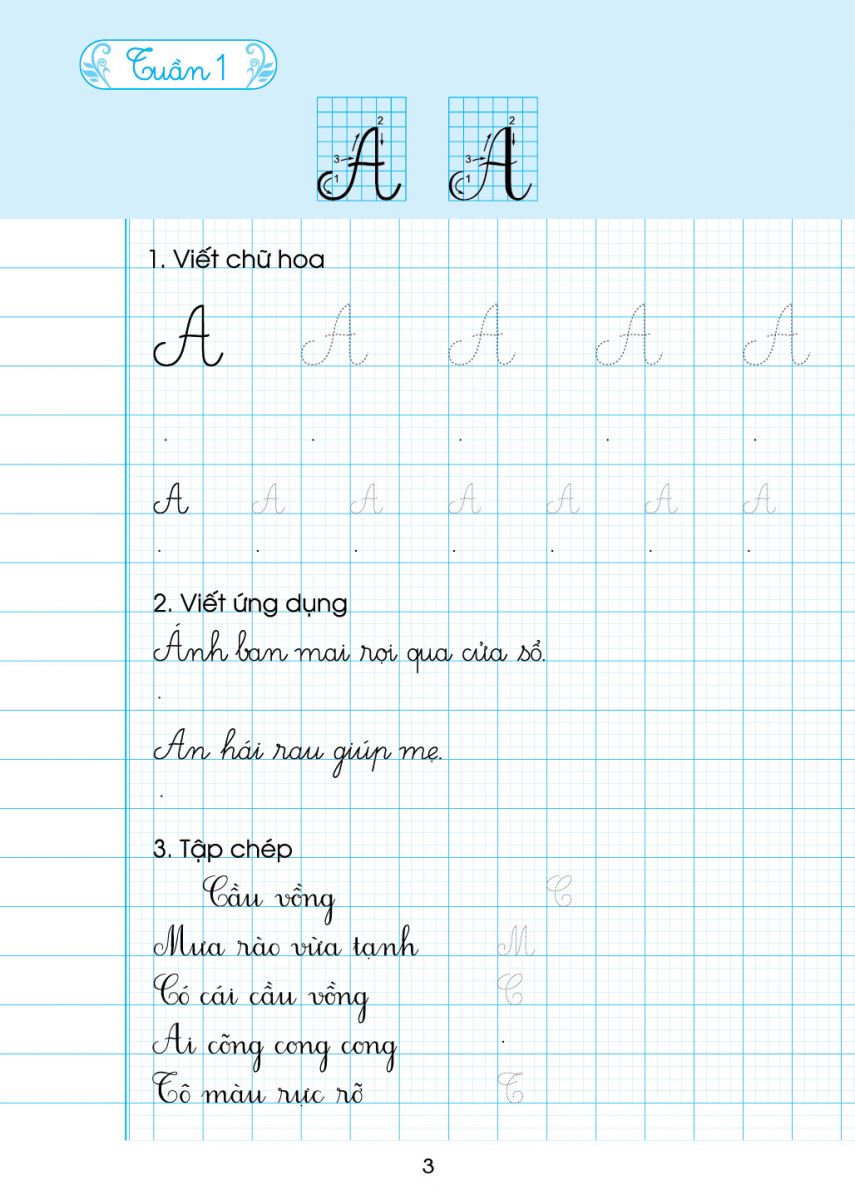 Tuần 1
2 2
3 3
1 1
1. Viết chữ hoa
A A A A A
A A A A A A A
2. Viết ứng dụng
Ánh ban mai rọi qua cửa sổ.
An hái rau giúp mẹ.
3. Tập chép
Cầu vồng C
Mưa rào vừa tạnh M
Có cái cầu vồng C
Ai cõng cong cong
Tô màu rực rỡ T
3